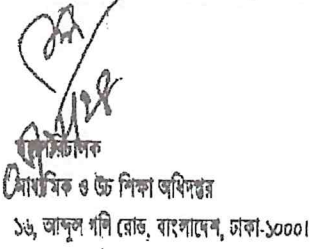 মহাপরিচালক
মাধ্যমিক ও উচ্চ শিক্ষা অধিদপ্তর
১৬, আব্দুল গনি রোড, বাংলাদেশ, ঢাকা-১০০০।